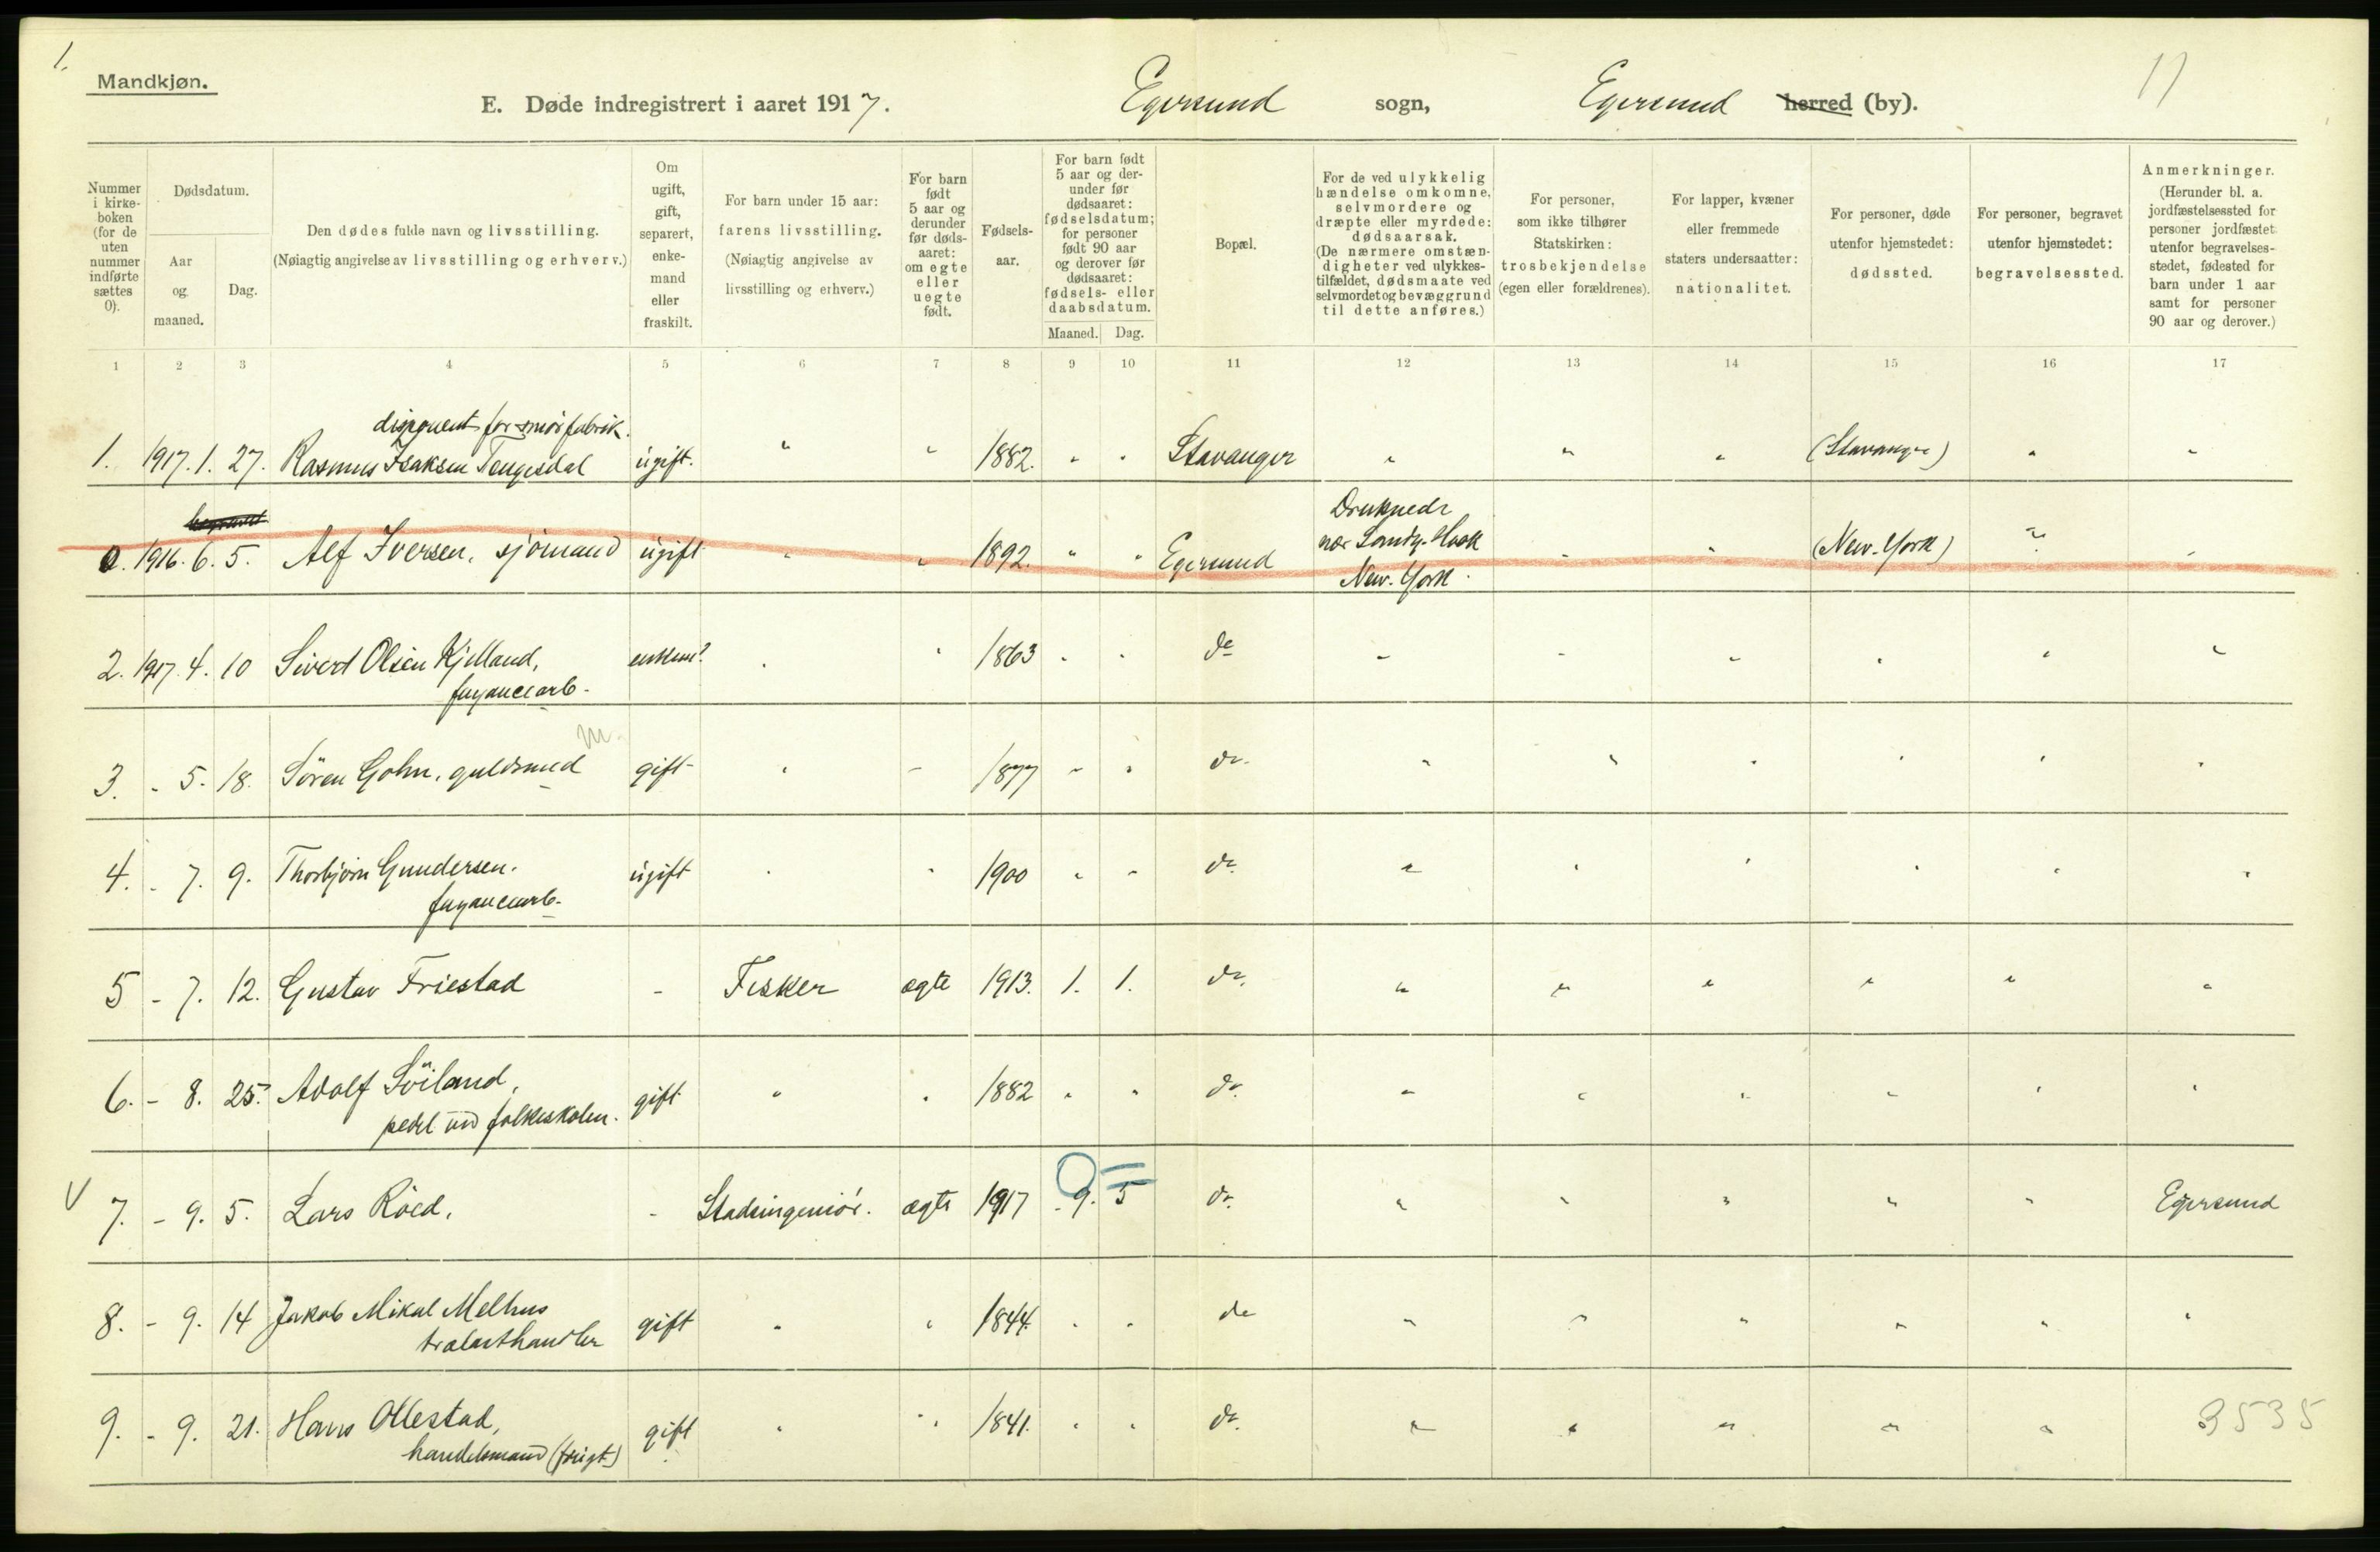 1.
Mandkjøn.
E. Døde indregistrert i aaret 1917. Egersund sogn, Egersund herred (by).
11
Nummer i kirkeboken (for de uten nummer indførte sættes 0).
Dødsdatum.
Aar og maaned.
Dag.
Den dødes fulde navn og livsstilling.
(Nøiagtig angivelse av livsstilling og erhverv.)
Om ugift, gift, separert, enkemand eller fraskilt.
For barn under 15 aar:
farens livsstilling.
(Nøiagtig angivelse av livsstilling og erhverv.)
For barn født 5 aar og derunder før dødsaaret: om egte eller uegte født.
Fødselsaar.
For barn født 5 aar og derunder før dødsaaret: fødselsdatum; for personer født 90 aar og derover før dødsaaret: fødsels- eller daabsdatum.
Maaned. Dag.
Bopæl.
For de ved ulykkelig hændelse omkomne, selvmordere og dræpte eller myrdede: dødsaarsak.
(De nærmere omstændigheter ved ulykkestilfældet, dødsmaate ved selvmordet og bevæggrund til dette anføres.)
For personer, som ikke tilhører Statskirken: trosbekjendelse (egen eller forældrenes).
For lapper, kvæner eller fremmede staters undersaatter: nationalitet.
For personer, døde utenfor hjemstedet: dødssted.
For personer, begravet utenfor hjemstedet: begravelsessted.
Anmerkninger.
(Herunder bl. a. jordfæstelsessted for personer jordfæstet utenfor begravelsesstedet, fødested for barn under 1 aar samt for personer 90 aar og derover.)
1 2 3 4 5 6 7 8 9 10 11 12 13 14 15 16 17
disponent for smörfabrik.
1. 1917. 1. 27. Rasmus Isaksen Tengesdal ugift. " " 1882. " " Stavanger " " " (Stavanger) " "
begravet
0. 1916. 6. 5. Alf Iversen, sjömand ugift " " 1892. " " Egersund Druknede nær Sandy-Hook New-York. " " (New-York) ? "
2. 1917. 4. 10 Sivert Olsen Kjelland, enkem? " " 1863 " " do " " " " " "
fayancearb.
m.
3. - 5. 18. Sören Gohn, guldsmed gift " " 1877 " " do. " " " " " "
4. - 7. 9. Thorbjörn Gundersen. ugift " " 1900 " " do. " " " " " "
fayancearb.
5 - 7. 12. Gustav Friestad - Fisker ægte 1913. 1. 1. do. " " " " " "
6. - 8. 25. Adolf Söiland, gift " " 1882 " " do. " " " " " "
pedel ved folkeskolen.
V 7. - 9. 5. Lars Röed, - Stadsingeniör. ægte 1917 9. 5 do. " " " " " Egersund
8. - 9. 14 Jakob Mikal Melhus gift " " 1844. " " do " " " " " "
trælasthandler
9. - 9. 21. Hans Ollestad, gift " " 1841. " " do. " " " " "
handelsmand (frigt.)
3535